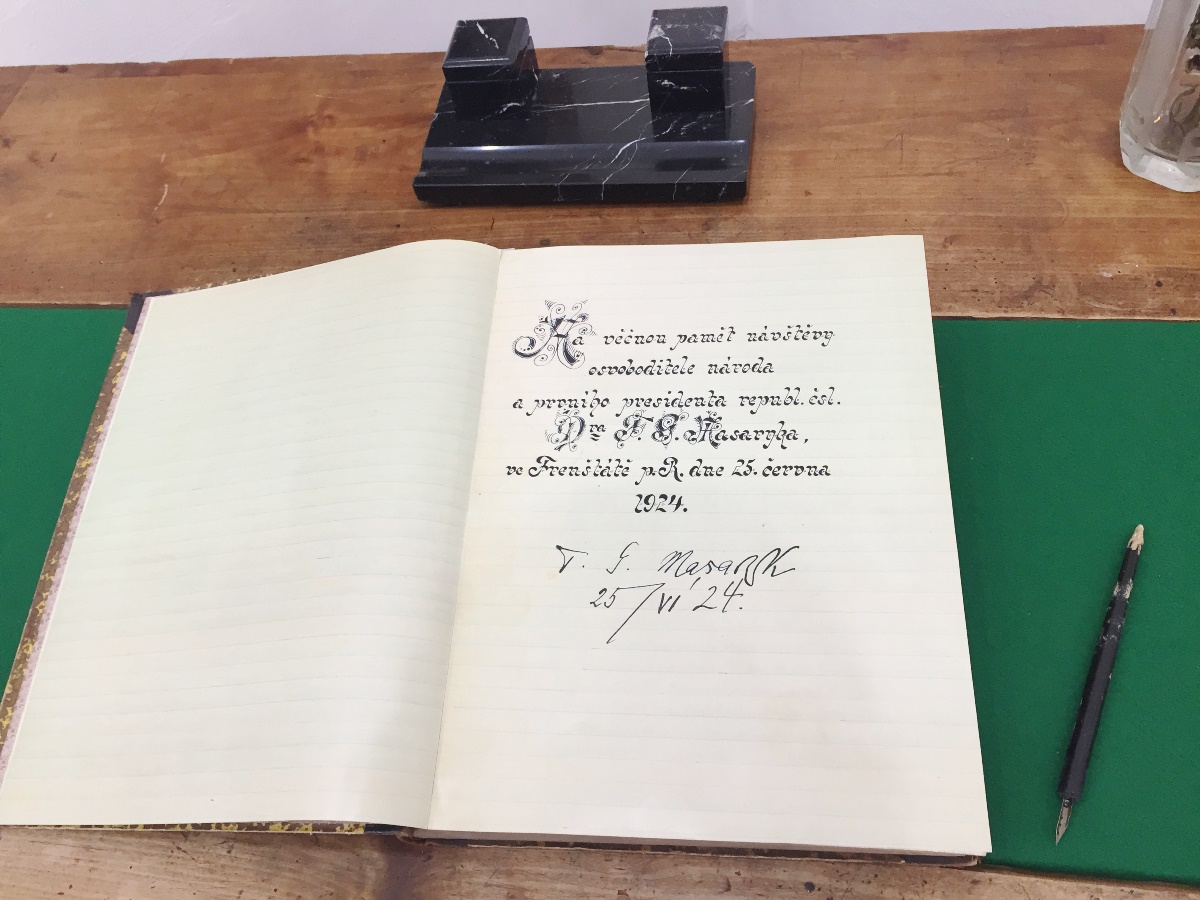 Na věčnou paměť návštěvy
osvoboditele národa
a prvního presidenta republ. čsl.
Dra T. G. Masaryka,
ve Frenštátě p. R. dne 25. června
1924.
T. G. Masaryk
25/VI 24.